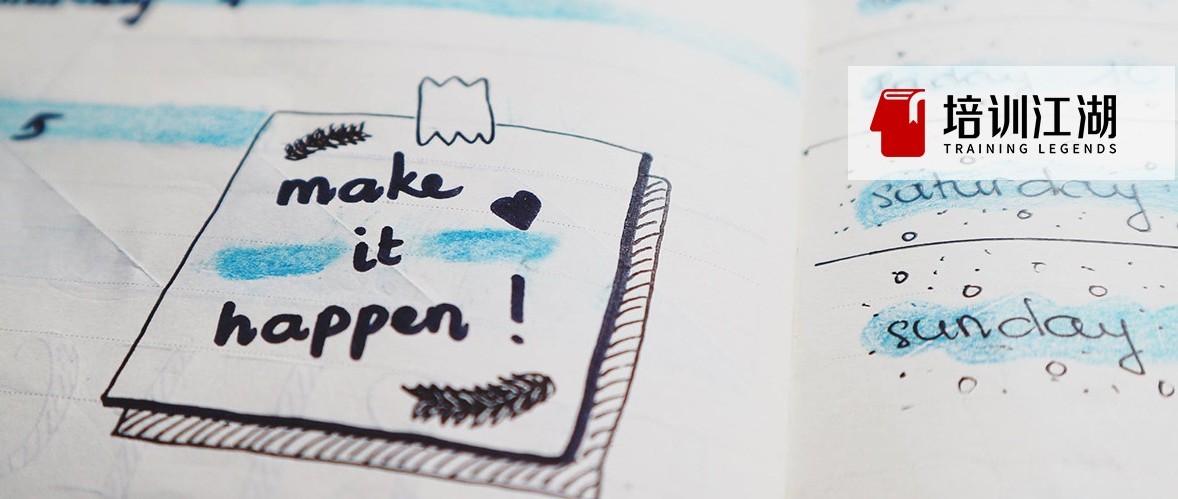 5
make
it
happen !
培训江湖
TRAINING LEGENDS
saturday
sunday